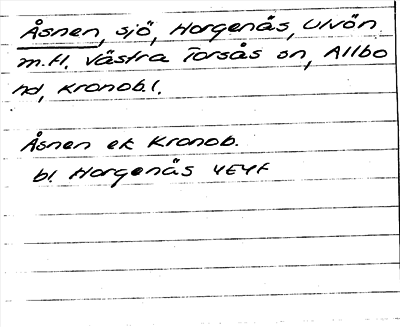 Åsnen, sjö, Horgenäs, Ulvön
m.fl. Västra Torsås sn, Allbo
hd, Kronob.l.
Åsnen ek Kronob.
bl. Horgenäs 4E4f